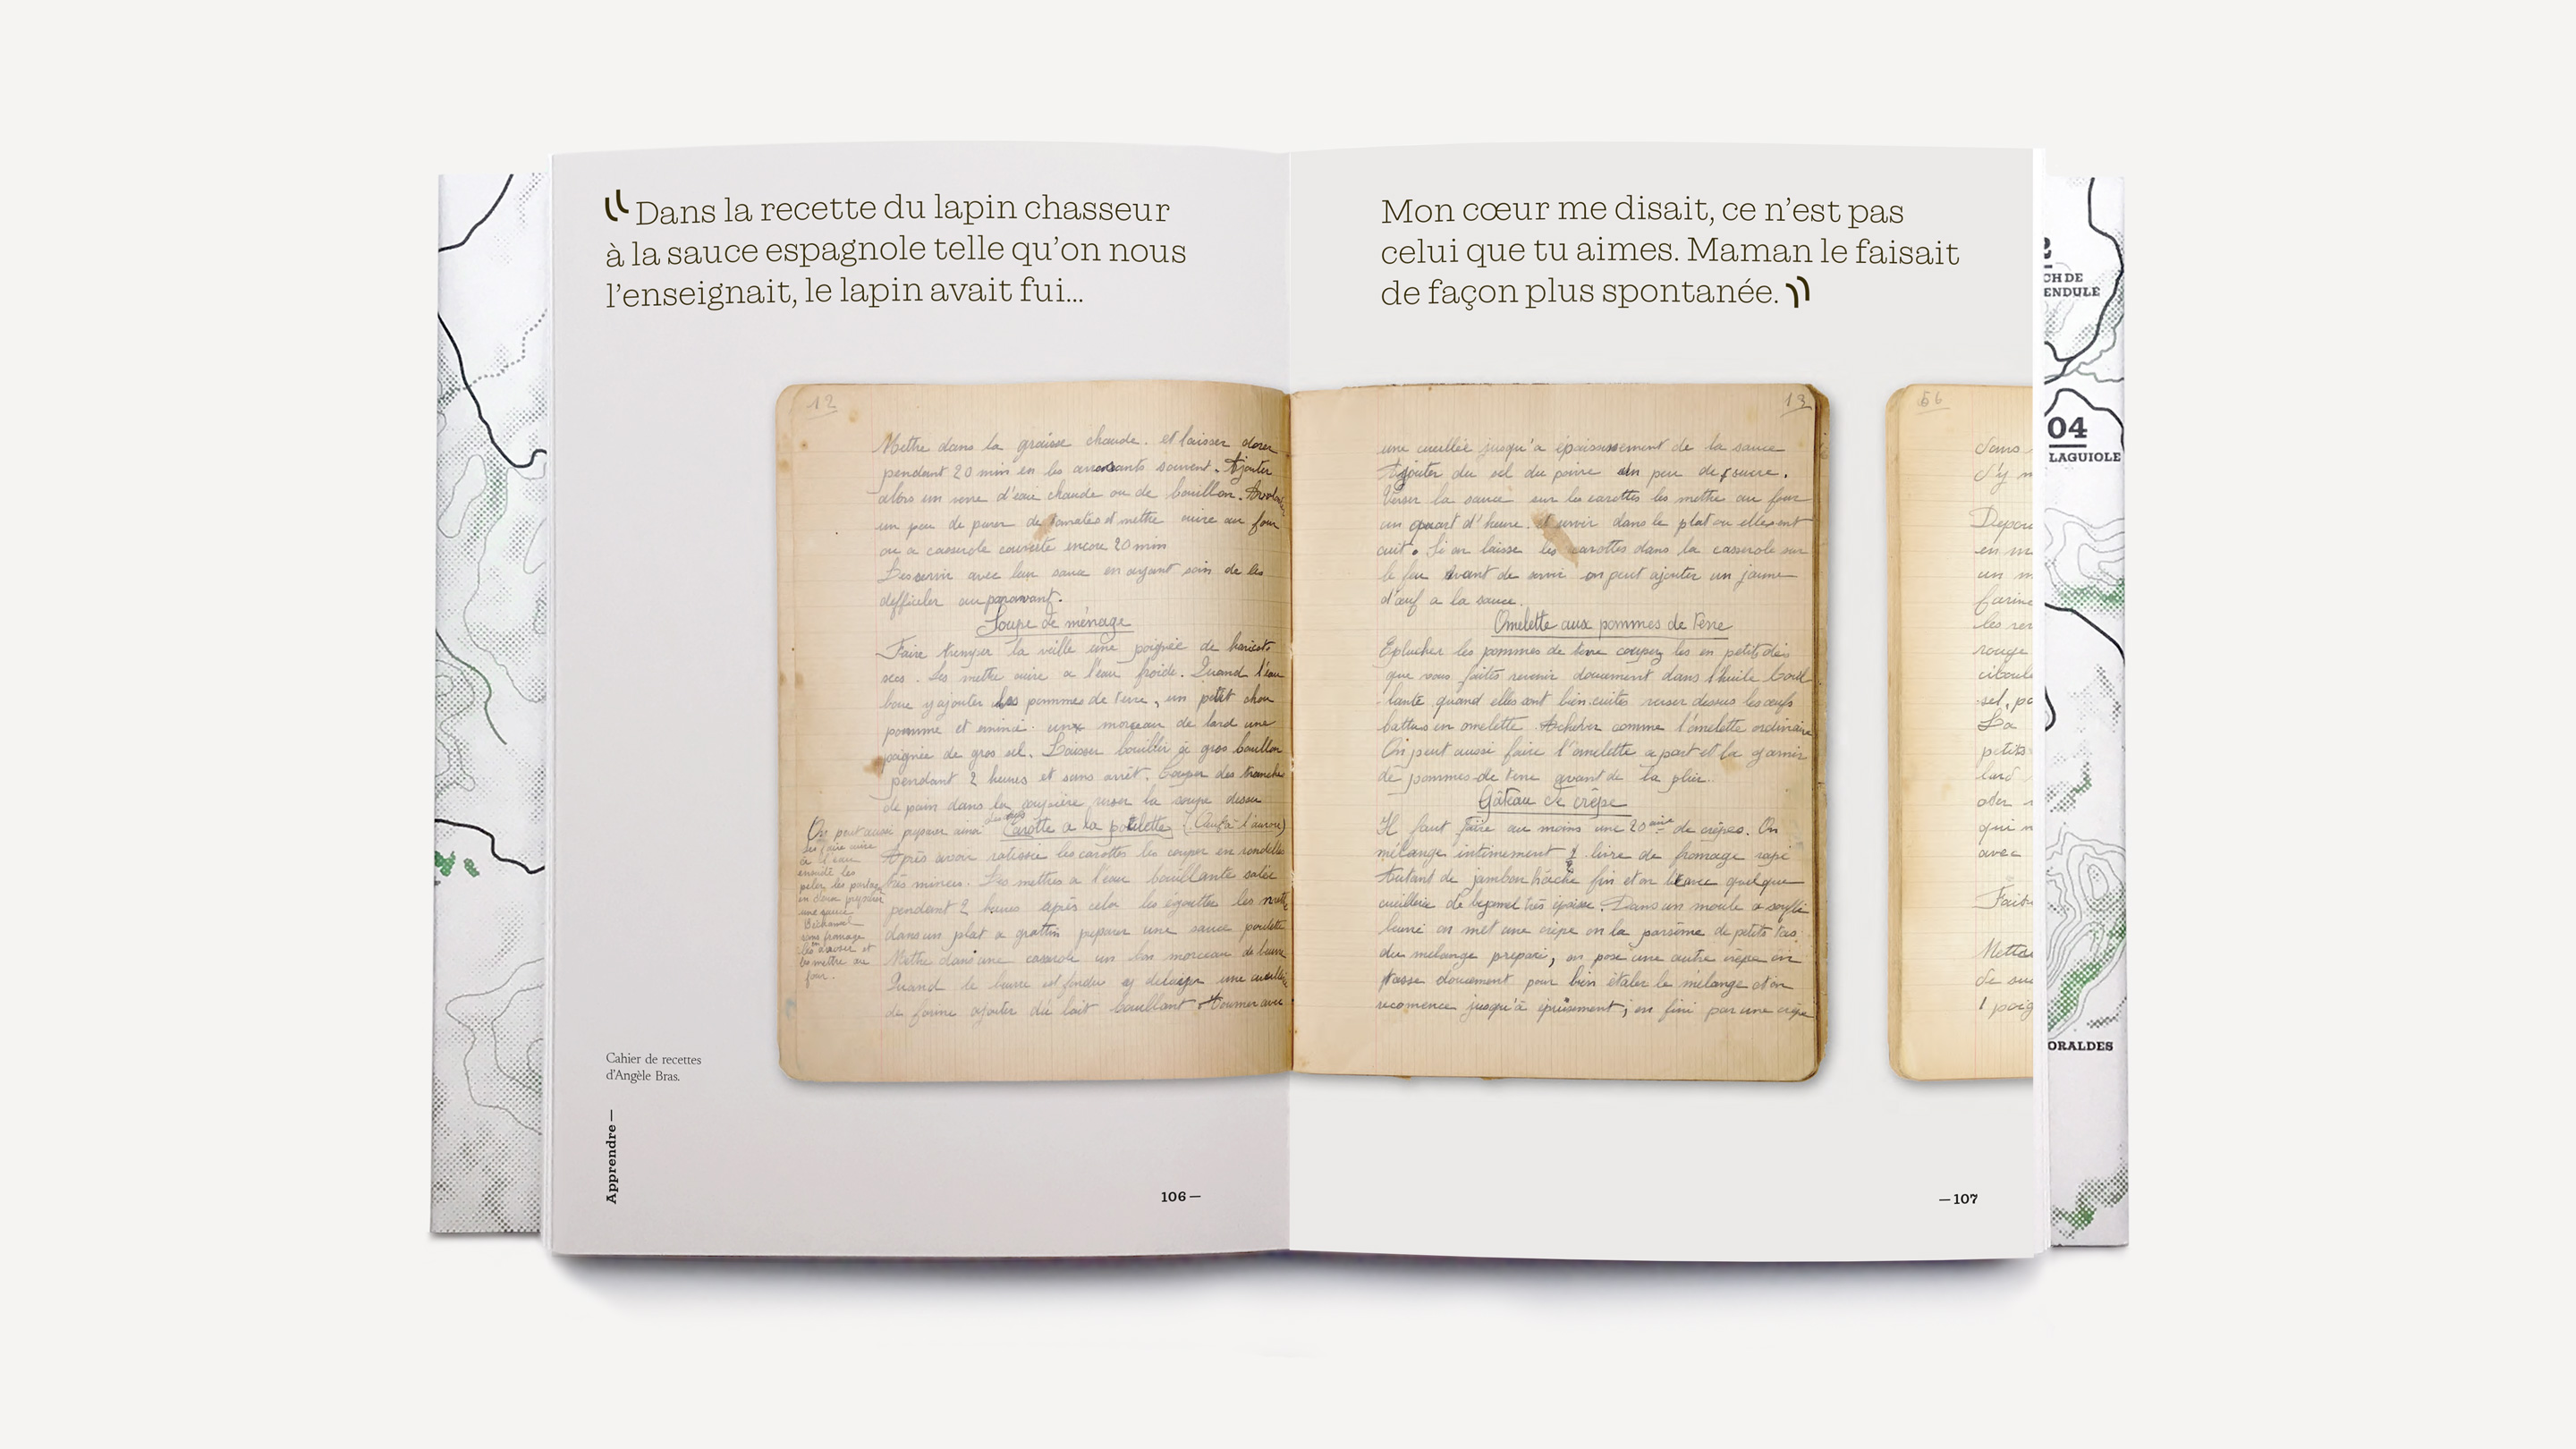 “Dans la recette du lapin chasseur
à la sauce espagnole telle qu’on nous
l’enseignait, le lapin avait fui…
Mon cœur me disait, ce n’est pas
celui que tu aimes. Maman le faisait
de façon plus spontanée.”
12
Methe dans la graisse chaude. et laisser dorer
pendant 20 min en les arrosants souvent. Ajouter
alors un verre d'eau chaude ou de bouillon.
un peu de puree de tomates et methe cuire au four
ou a casserole couverte encore 20 min
Les servir avec leur sauce en ayant soin de les
defficeler auparavant.
Soupe de ménage
Faire tremper la veille une poignée de haricots
secs. Les methe cuire a l'eau froide. Quand l'eau
boue y ajouter des pommes de terre, un petit chou
pomme et émincé. un morceau de lard une
poignée de gros sel. Laisser bouillir à gros bouillon
pendant 2 heures et sans arrêt. Couper des tranche
de pain dans la soupière verser la soupe dessu
Carotte a la poulette (Oeufs à l'aurore)
On peut aussi
les faire cuire
à l'eau
ensuite les
peler, les partager
en deux
une sauce
Béchamel
sans fromage
les mettre au
four.
Après avoir ratissée les carottes les couper en rondelles
très minces. Les mettres a l'eau bouillante salée
pendant 2 heures après cela les égoutter les
dans un plat a grattin preparer une sauce poulette
Methe dans une casserole un bon morceau de beurre
Quand le beurre est fondu y delayer une cuillée
de farine ajouter du lait bouillant tourner avec
13
une cuillée jusqu'a épaississement de la sauce
Ajouter du sel du poivre un peu de sucre.
Verser la sauce sur les carottes les methe au four
un quart d'heure. et servir dans le plat ou elles ont
cuit. Si on laisse les carottes dans la casserole sur
le feu avant de servir on peut ajouter un jaune
d'œuf a la sauce.
Omelette aux pommes de terre
Eplucher les pommes de terre coupez les en petits dés
que vous faîtes revenir doucement dans l'huile bouil
lante quand elles sont bien cuites verser dessus les œufs
battus en omelette. Achever comme l'omelette ordinaire
On peut aussi faire l'omelette a part et la garnir
de pommes de terre avant de la plier.
Gâteau de crêpe
Il faut faire au moins une 20aine de crêpes. On
mélange intimement livre de fromage rapé
Autant de jambon haché fin et on quelque
cuillerée de très épaisse. Dans un moule a soufflé
beurré on met une crêpe on la parsème de petits tas
du mélange préparé, on pose une autre crêpe on
tasse doucement pour bien étaler le mélange et on
recomence jusqu'à épuisement; on fini par une crêpe
56
Dans
d'y m
en m
un m
farine
les
rouge
ciboule
sel, po
La
petits
lard
qui n
avec
Fait
Mettre
de suc
1 poig
Cahier de recettes
d’Angèle Bras.
Apprendre —
106 —
— 107
2
CH DE
ENDULE
04
LAGUIOLE
ORALDES